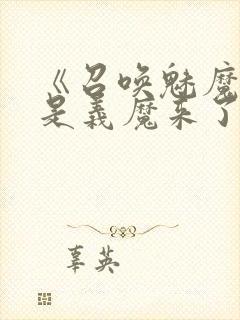 《召唤魅魔
是义魔来了
辜英